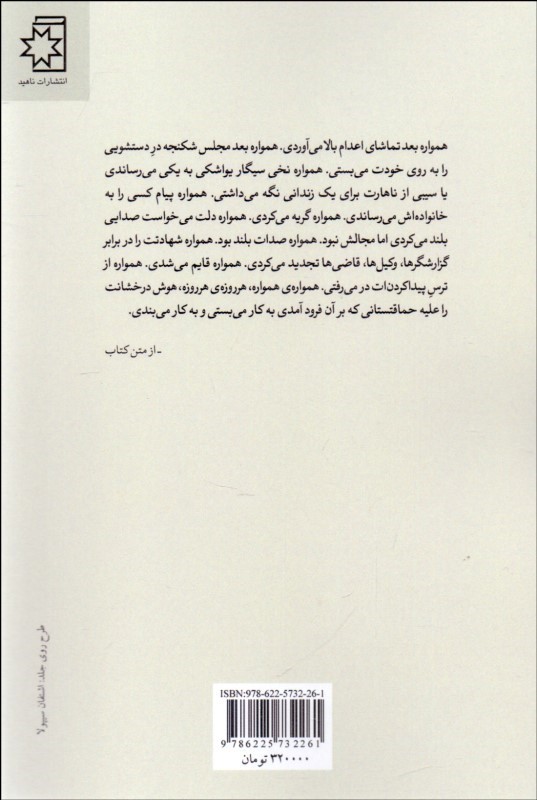 انتشارات ناهید
همواره بعد تماشای اعدام بالا می‌آوردی. همواره بعد مجلس شکنجه درِ دستشویی
را به روی خودت می‌بستی. همواره نخی سیگار یواشکی به یکی می‌رساندی
یا سیبی از ناهارت برای یک زندانی نگه می‌داشتی. همواره پیام کسی را به
خانواده‌اش می‌رساندی. همواره گریه می‌کردی. همواره دلت می‌خواست صدایی
بلند می‌کردی اما مجالش نبود. همواره صدات بلند بود. همواره شهادتت را در برابر
گزارشگرها، وکیل‌ها، قاضی‌ها تجدید می‌کردی. همواره قایم می‌شدی. همواره از
ترسِ پیداکردن‌ات در می‌رفتی. همواره‌ی همواره، هرروزه‌ی هرروزه، هوش درخشانت
را علیه حماقتستانی که بر آن فرود آمدی به کار می‌بستی و به کار می‌بندی.
- از متن کتاب
طرح روی جلد: اشتفان سیپولا
ISBN:978-622-5732-26-1
9 786225 732261
۳۲۰۰۰۰ تومان